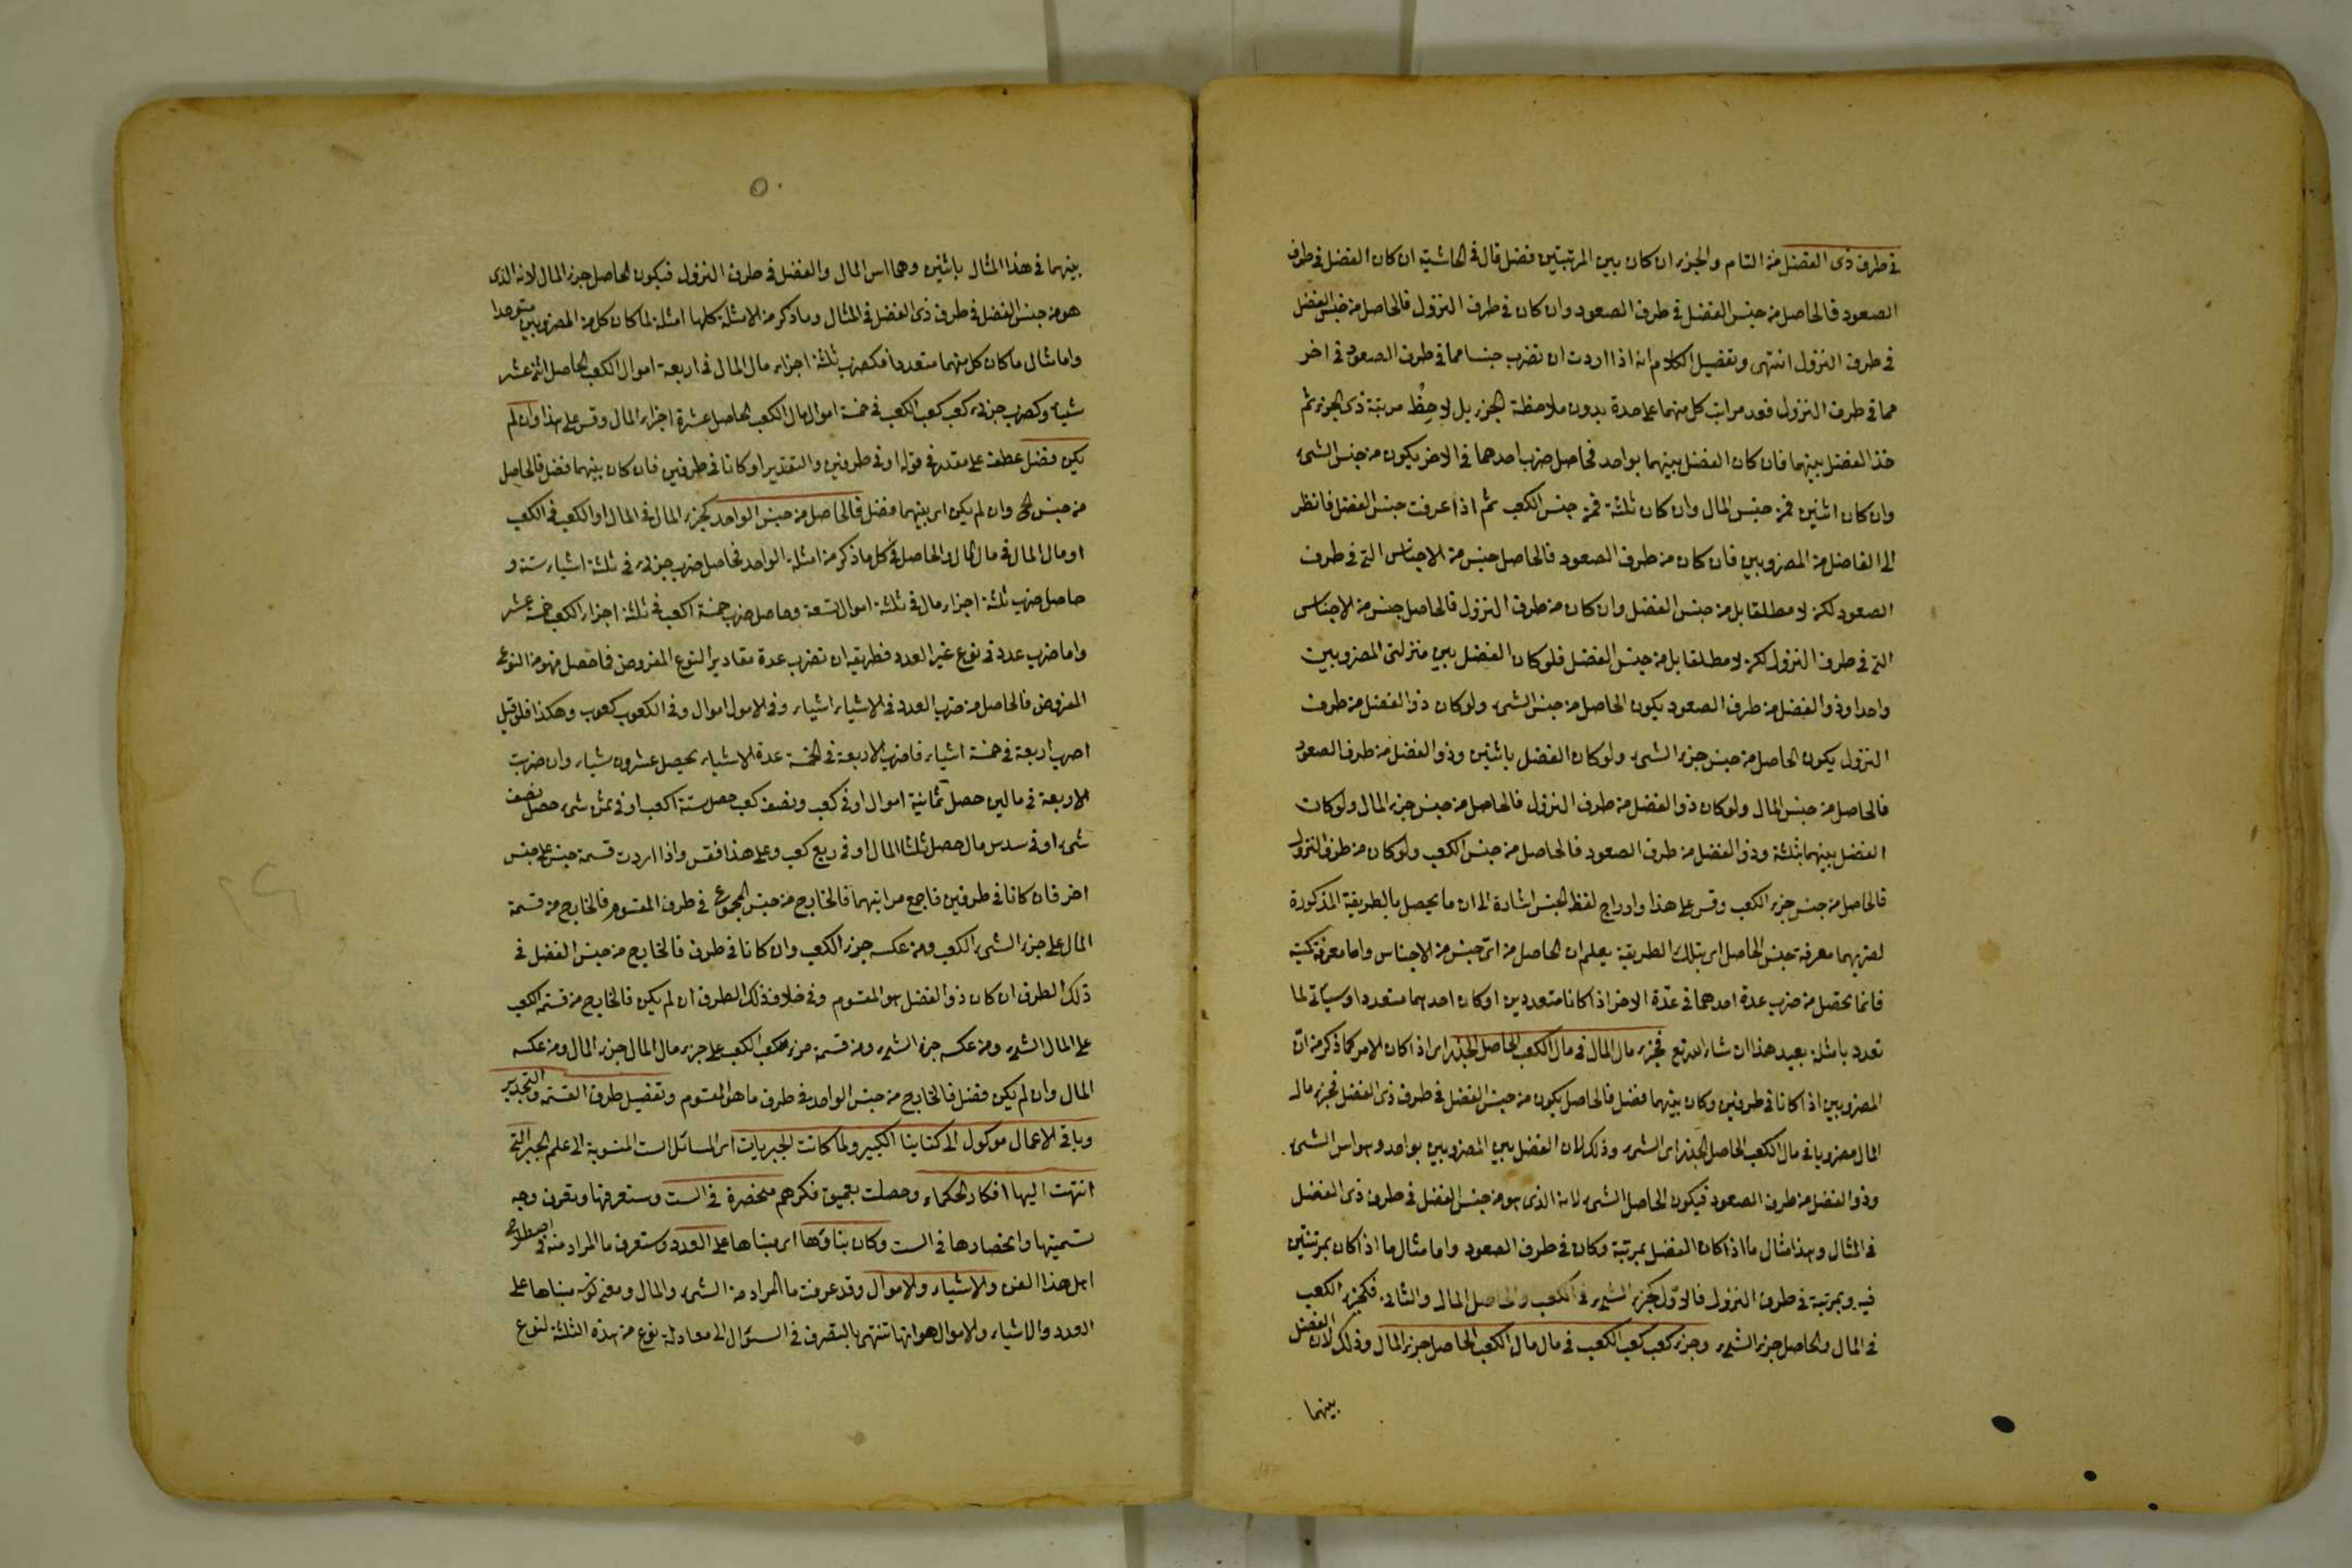 في طرف ذى الفضل من التام والجزء ان كان بين المرتبتين فضل قال في الحاشية ان كان الفضل في طرف
الصعود فالحاصل من جنس الفضل في طرف الصعود وان كان في طرف النزول فالحاصل من جنس الفضل
في طرف النزول انتهى وتفصيل الكلام انه اذا اردت ان تضرب جنسا مما في طرف الصعود في اخر
مما في طرف النزول فعد مراتب كل منهما على حدة بدون ملاحظة الجزء بل لاحظ مرتبة ذى الجزء ثم
خذ الفضل بينهما فان كان الفضل بينهما بواحد فحاصل ضرب احدهما في الاخر يكون من جنس الشىء
وان كان اثنين فمن جنس المال وان كان ثلثة فمن جنس الكعب ثم اذا عرفت جنس الفضل فانظر
الى الفاضل من المضروبين فان كان من طرف الصعود فالحاصل جنس من الاجناس التى في طرف
الصعود لكن لا مطلقا بل من جنس الفضل وان كان من طرف النزول فالحاصل جنس من الاجناس
التى في طرف النزول لكن لا مطلقا بل من جنس الفضل فلو كان الفضل بين منزلتى المضروبين
واحدا وذو الفضل من طرف الصعود يكون الحاصل من جنس الشىء ولو كان ذو الفضل من طرف
النزول يكون الحاصل من جنس جزء الشىء ولو كان الفضل باثنين وذو الفضل من طرف الصعود
فالحاصل من جنس المال ولو كان ذو الفضل من طرف النزول فالحاصل من جنس جزء المال ولو كان
الفضل بينهما بثلثة وذو الفضل من طرف الصعود فالحاصل من جنس الكعب ولو كان من طرف النزول
فالحاصل من جنس جزء الكعب وقس على هذا وادراج لفظ الجنس اشارة الى ان ما يحصل بالطريقة المذكورة
لضربهما معرفة جنس الحاصل اى بتلك الطريقة يعلم ان الحاصل من اىّ جنس من الاجناس واما معرفة كميته
فانما يحصل من ضرب عدة احدهما في عدّة الاخر اذا كانا متعددين او كان احدهما متعددا وسيأتى لما
تعدد بامثلة بعيد هذا ان شاء الله تع فجزء مال المال في مال الكعب الحاصل الجذر اى اذا كان الامر كما ذكر من انّ
المضروبين اذا كانا في طرفين وكان بينهما فضل فالحاصل يكون من جنس الفضل في طرف ذى الفضل فجزء مال
المال مضروبا في مال الكعب الحاصل الجذر اى الشىء وذلك لان الفضل بين المضروبين بواحد وهو اس الشىء
وذو الفضل من طرف الصعود فيكون الحاصل الشىء لانه الذى هو من جنس الفضل في طرف ذى الفضل
في المثال وهذا مثال ما اذا كان الفضل بمرتبة وكان في طرف الصعود واما مثال ما اذا كان بمرتبتين
فيه وبمرتبة في طرف النزول فالاوّل كجزء الشىء في الكعب والحاصل المال والثانى فكجزء الكعب
في المال والحاصل جزء الشىء وجزء كعب كعب الكعب في مال مال الكعب الحاصل جزء المال وذلك لان الفضل
بينهما
بينهما في هذا المثال باثنين وهما اس المال والفضل في طرف النزول فيكون الحاصل جزء المال لانه الذى
هو من جنس الفضل في طرف ذى الفضل في المثال وما ذكر من الامثلة كلها امثلة لما كان كل من المضروبين متوحدا
واما مثال ما كان كل منهما متعددا فكضرب ثلثة اجزاء مال المال في اربعة اموال الكعب الحاصل اثنى عشر
شيأ وكضرب جزئى كعب كعب الكعب في خمسة اموال مال الكعب الحاصل عشرة اجزاء المال وقس على هذا وان لم
يكن فضل عطف على مقدر في قوله او في طرفين والتقدير او كانا في طرفين فان كان بينهما فضل فالحاصل
من جنس الخ وان لم يكن اى بينهما فضل فالحاصل من جنس الواحد كجزء المال في المال او الكعب في الكعب
او مال المال في مال المال والحاصل في كل ما ذكر من امثلة الواحد فحاصل ضرب جزئى في ثلثة اشياء ستة و
حاصل ضرب ثلثة اجزاء مال في ثلثة اموال تسعة وحاصل ضرب خمسة اكعب في ثلثة اجزاء الكعب خمسة عشر
واما ضرب عدد في نوع غير العدد فطريقه ان تضرب عدة مقادير النوع المفروض فما حصل فهو من النوع
المفروض فالحاصل من ضرب العدد في الاشياء اشياء وفى الاموال اموال وفى الكعوب كعوب وهكذا فلو قيل
اضرب اربعة في خمسة اشياء فاضرب الاربعة في الخمسة عدة الاشياء يحصل عشرون شيأ وان ضربت
الاربعة في مالين حصل ثمانية اموال او في كعب ونصف كعب حصل ستة اكعب او في ثمن شىء حصل نصف
شىء او في سدس مال حصل ثلثا المال او في ربع كعب وعلى هذا فقس واذا اردت قسمة جنس على جنس
اخر فان كانا في طرفين فاجمع مراتبهما فالخارج من جنس المجموع في طرف المقسوم فالخارج من قسمة
المال على جزء الشىء الكعب ومن عكسه جزء الكعب وان كانا في طرف فالخارج من جنس الفضل في
ذلك الطرف ان كان ذو الفضل هو المقسوم وفى خلاف ذلك الطرف ان لم يكن فالخارج من قسمة الكعب
على المال الشىء ومن عكسه جزء الشىء ومن قسمة جزء كعب الكعب على جزء مال المال جزء المال ومن عكسه
المال وان لم يكن فضل فالخارج من جنس الواحد في طرف ما هو المقسوم وتفصيل طرق القسمة والتجذير
وباقى الاعمال موكول الى كتابنا الكبير ولما كانت الجبريات اى المسائل الست المنسوبة الى علم الجبر التى
انتهت اليها افكار الحكماء وحصلت بعميق فكرهم منحصرة في الست وستعرفها وتعرف وجه
تسميتها وانحصارها في الست وكان بناؤها اى مبناها على العدد وستعرف ما المراد منه في اصطلاح
اهل هذا الفن والاشياء والاموال وقد عرفت ما المراد من الشىء والمال ومعنى كونه مبناها على
العدد والاشياء والاموال هو انها تنتهى بالتصرف في السؤال الى معادلة نوع من هذه الثلثة لنوع